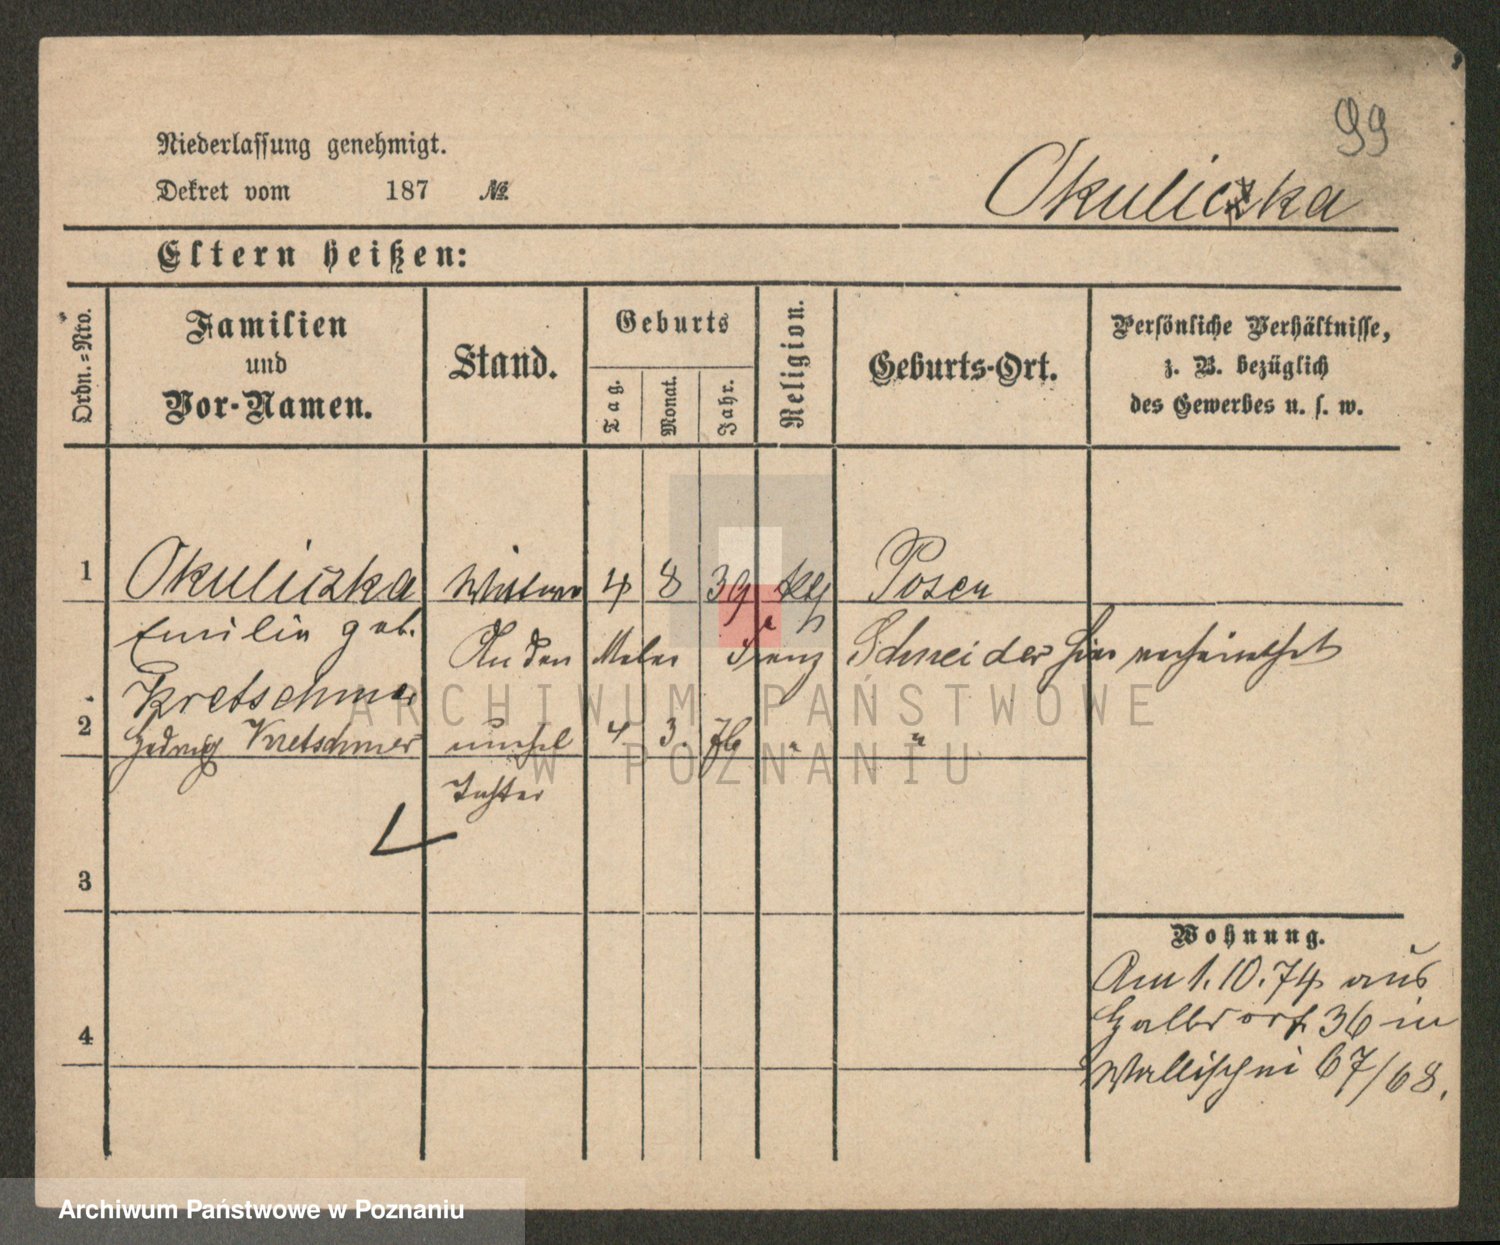 99
Niederlassung genehmigt.
Dekret vom 187 №
Okuliczka
Eltern heißen:
Ordn.=Nro.
Familien und Vor-Namen.
Stand.
Geburts
Tag.
Monat.
Jahr.
Religion.
Geburts-Ort.
Persönliche Verhältnisse,
z. B. bezüglich
des Gewerbes u. s. w.
1 Okuliczka Wittwe 4 8 39 kth Posen
Emilie geb.
An den Maler Franz Schneider hier verheirathet
Kretschmer
2 Hedwig Kretschmer unehel 4 3. " "
Tochter
3
4
Wohnung.
Am 1. 10. 74 aus
Halbdorf 36 in
Wallischei 67/68.
ARCHIWUM PAŃSTWOWE
W POZNANIU
Archiwum Państwowe w Poznaniu